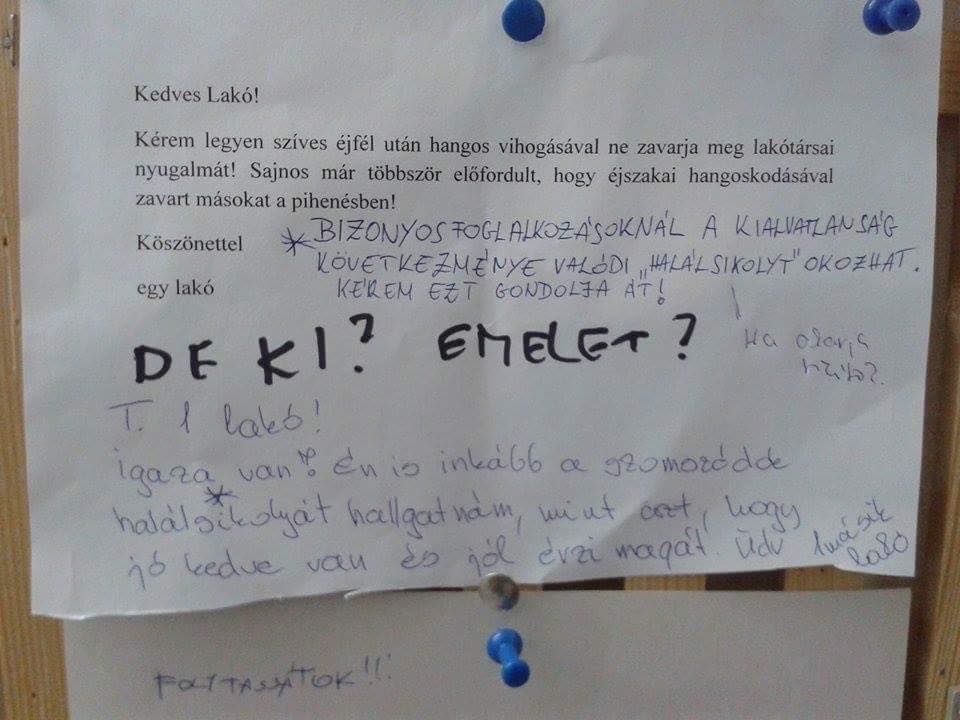 Kedves Lakó!
Kérem legyen szíves éjfél után hangos vihogásával ne zavarja meg lakótársai
nyugalmát! Sajnos már többször előfordult, hogy éjszakai hangoskodásával
zavart másokat a pihenésben!
Köszönettel
egy lakó
* BIZONYOS FOGLALKOZÁSOKNÁL A KIALVATLANSÁG
KÖVETKEZMÉNYE VALÓDI „HALÁLSIKOLYT” OKOZHAT.
KÉREM EZT GONDOLJA ÁT!
Ha
DE KI? EMELET?
T. 1 lakó!
igaza van! Én is inkább a szomszédde
halálsikolyát* hallgatnám, mint azt, hogy
jó kedve van és jól érzi magát. Üdv 1 másik
lakó
FOLYTASSÁTOK!!!